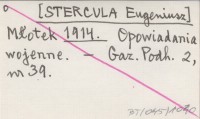 [STERCULA Eugeniusz]
Młotek 1914. Opowiadania
wojenne. – Gaz. Podh. 2,
nr 39.